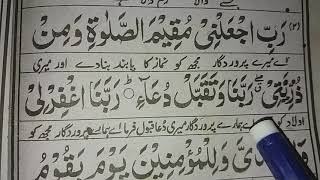 والا
(۲) رَبِّ اجْعَلْنِیْ مُقِیْمَ الصَّلٰوةِ وَمِنْ
اے میرے پروردگار مجھ کو نماز کا پابند بنا دے اور میری
ذُرِّیَّتِیْ رَبَّنَا وَتَقَبَّلْ دُعَآءِ رَبَّنَا اغْفِرْ لِیْ
اولاد کو اے ہمارے پروردگار میری دعا قبول فرما اے ہمارے پروردگار مجھ کو
وَلِلْمُؤْمِنِیْنَ یَوْمَ یَقُوْمُ